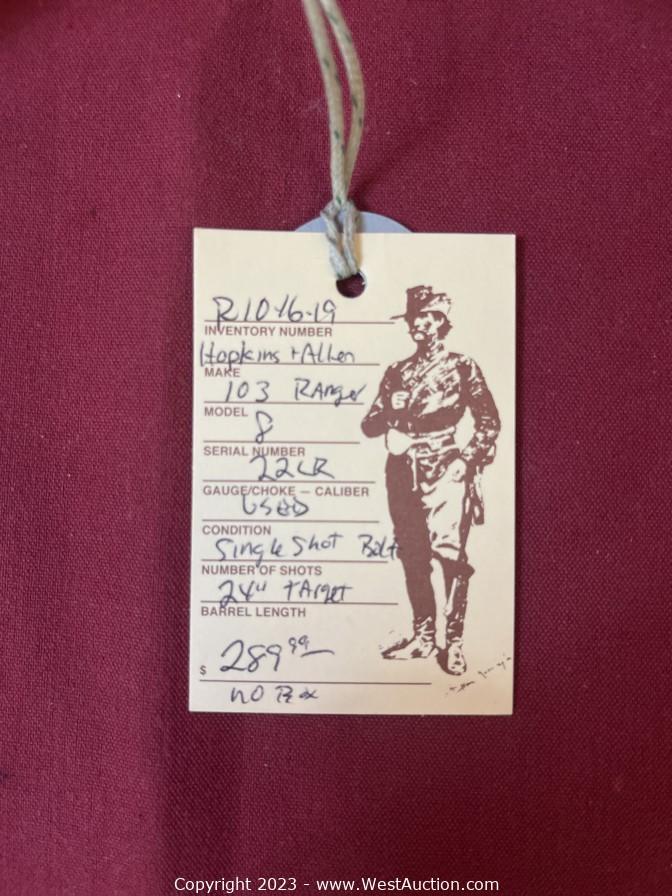 R1046-19
INVENTORY NUMBER
Hopkins + Allen
MAKE
103 Ranger
MODEL
8
SERIAL NUMBER
22LR
GAUGE/CHOKE — CALIBER
USED
CONDITION
Single Shot Bolt
NUMBER OF SHOTS
24" TArget
BARREL LENGTH
$ 289.99
NO Box
Copyright 2023 - www.WestAuction.com